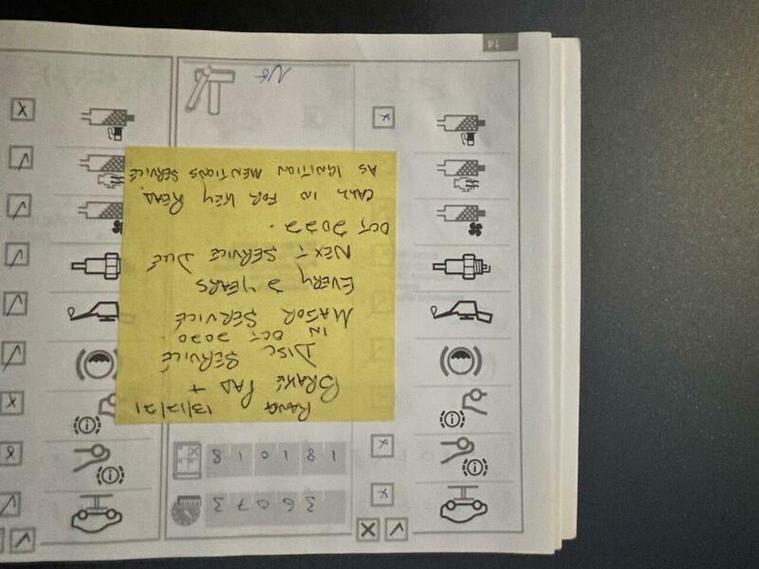 36073
181018
RANG 13/12/21
BRAKE PAD +
DISC SERVICE
IN OCT 2020.
MAJOR SERVICE
EVERY 2 YEARS
NEXT SERVICE DUE
OCT 2022.
CALL IN FOR KEY READ
AS IGNITION MENTIONS SERVICE
14